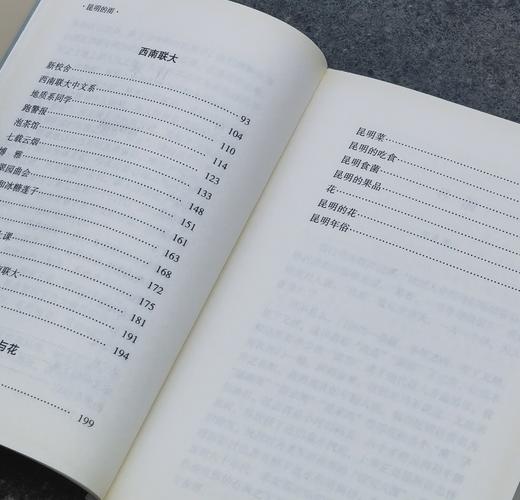 ·昆明的雨·
西南联大
新校舍 93
西南联大中文系 104
地质系同学 110
跑警报 114
泡茶馆 123
七载云烟 133
博 雅 148
园曲会 151
和冰糖莲子 161
163
上课 168
172
联大 175
181
191
194
与花
199
昆明菜
昆明的吃食
昆明食菌
昆明的果品
花
昆明的花
昆明年俗